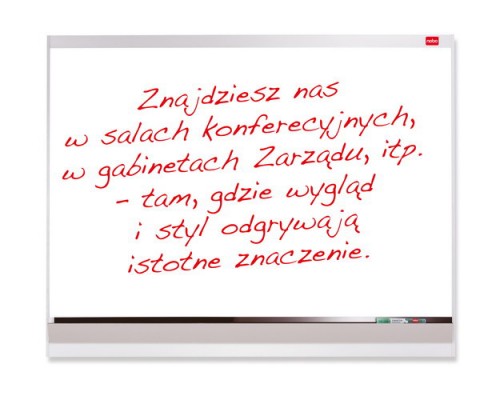 nobo
Znajdziesz nas
w salach konferecyjnych,
w gabinetach Zarządu, itp.
- tam, gdzie wygląd
i styl odgrywają
istotne znaczenie.